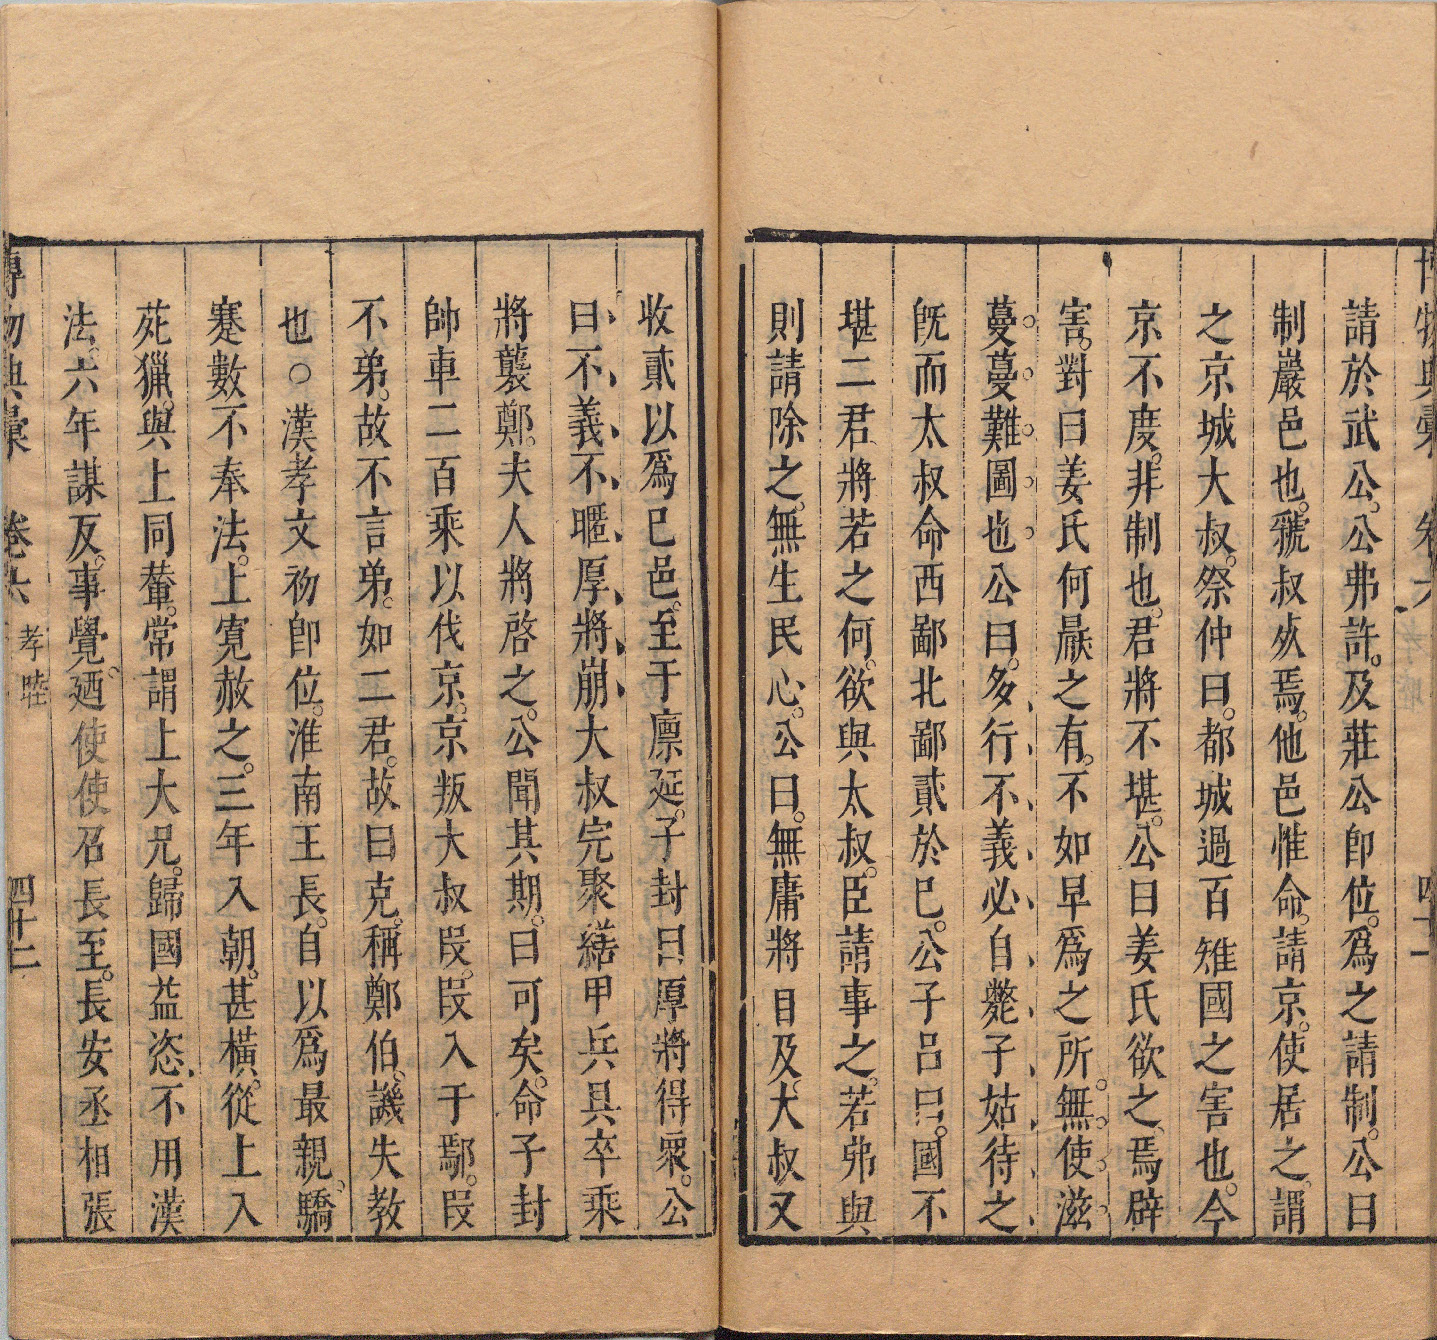 博物典彙 卷六 孝睦 四十一
請於武公。公弗許。及莊公卽位。爲之請制。公曰
制巖邑也。虢叔死焉。他邑惟命。請京。使居之。謂
之京城大叔。祭仲曰。都城過百雉國之害也。今
京不度。非制也。君將不堪。公曰姜氏欲之、焉辟
害。對曰姜氏何厭之有。不如早爲之所。無使滋
蔓。蔓難圖也。公曰。多行不義必自斃子姑待之
旣而太叔命西鄙北鄙貳於已。公子吕曰。國不
堪二君將若之何。欲與太叔。臣請事之。若弗與
則請除之。無生民心。公曰。無庸將自及。大叔又
收貳以爲已邑。至于廩延。子封曰厚將得眾。公
曰、不義不暱厚將崩大叔完聚繕甲兵具卒乘
將襲鄭。夫人將啓之。公聞其期。曰可矣。命子封
帥車二百乘以伐京。京叛大叔叚。叚入于鄢。叚
不弟。故不言弟。如二君。故曰克。稱鄭伯。譏失教
也○漢孝文初卽位。淮南王長。自以爲最親。驕
蹇數不奉法。上寬赦之。三年入朝。甚橫。從上入
苑獵。與上同輦。常謂上大兄。歸國益恣、不用漢
法。六年謀反。事覺。廼使使召長至。長安丞相張
博物典彙 卷六 孝睦 四十二